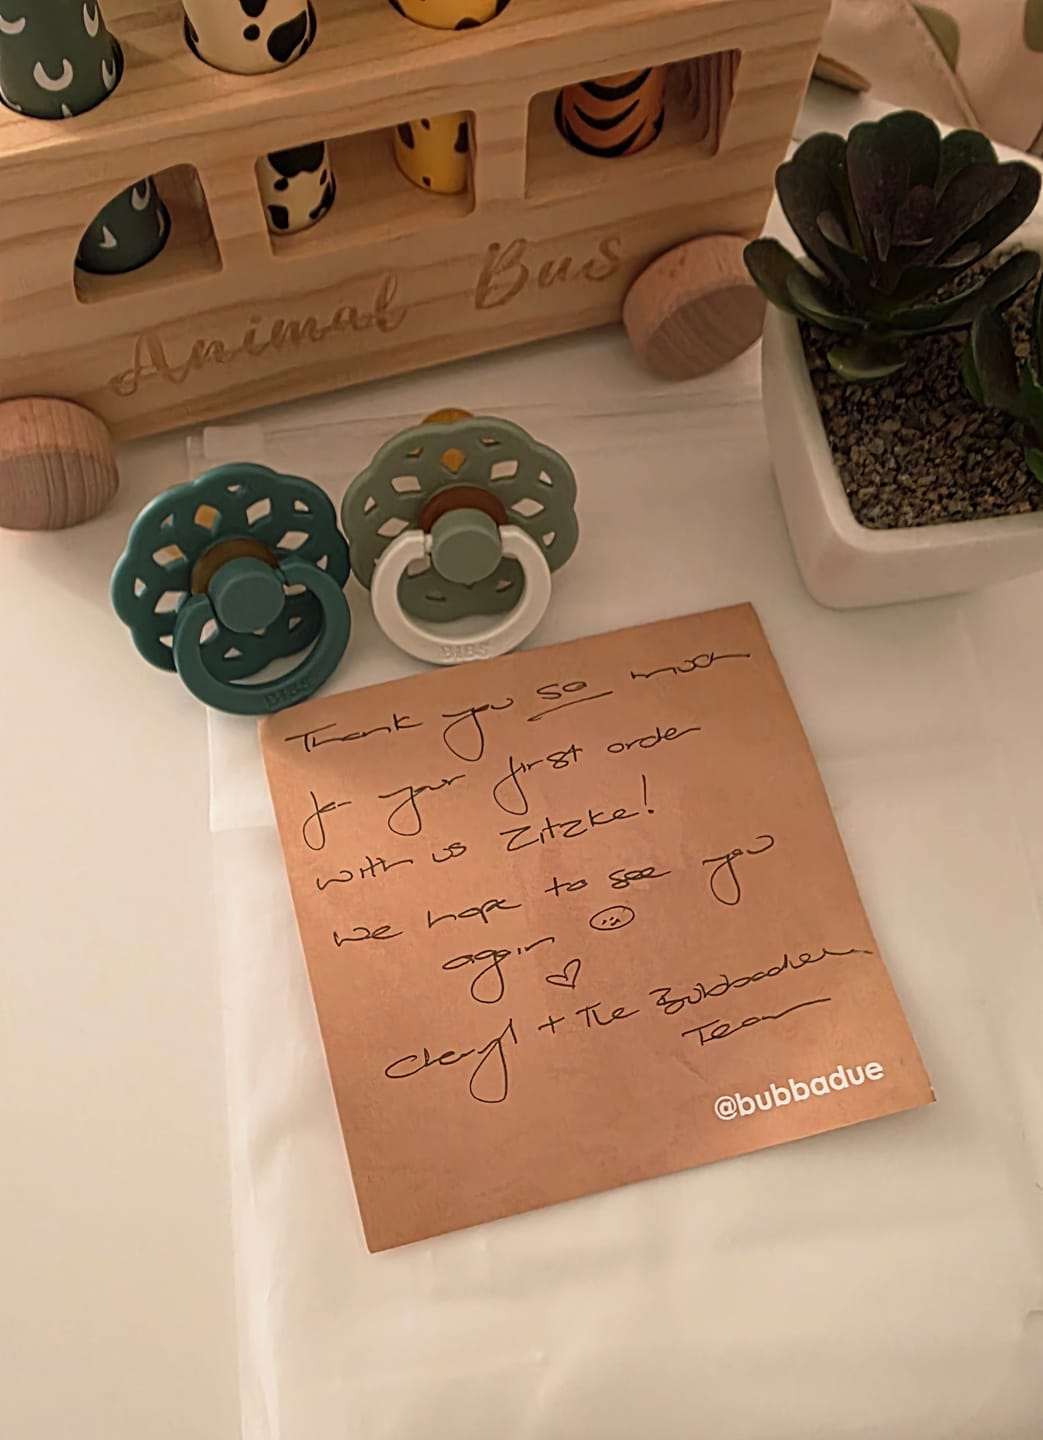 Animal Bus
BIBS
BIBS
Thank you so much
for your first order
with us Zitzke!
We hope to see you
again
Cheryl + The Bubbadue
Team
@bubbadue